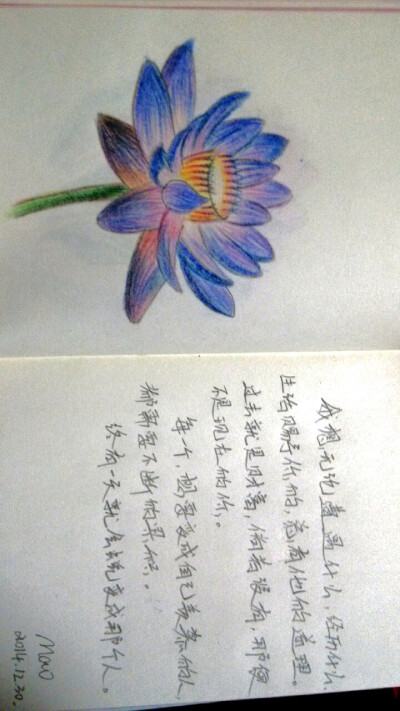 我想无论遭遇什么，经历什么，
生活赐予你的，总有他的道理。
过去就是财富，倘若没有，那便
不是现在的你，。
每一个，想要变成自己羡慕的人，
都需要不断的累积，。
终有一天就会蜕变成那个人。
Mao
2014.12.30.